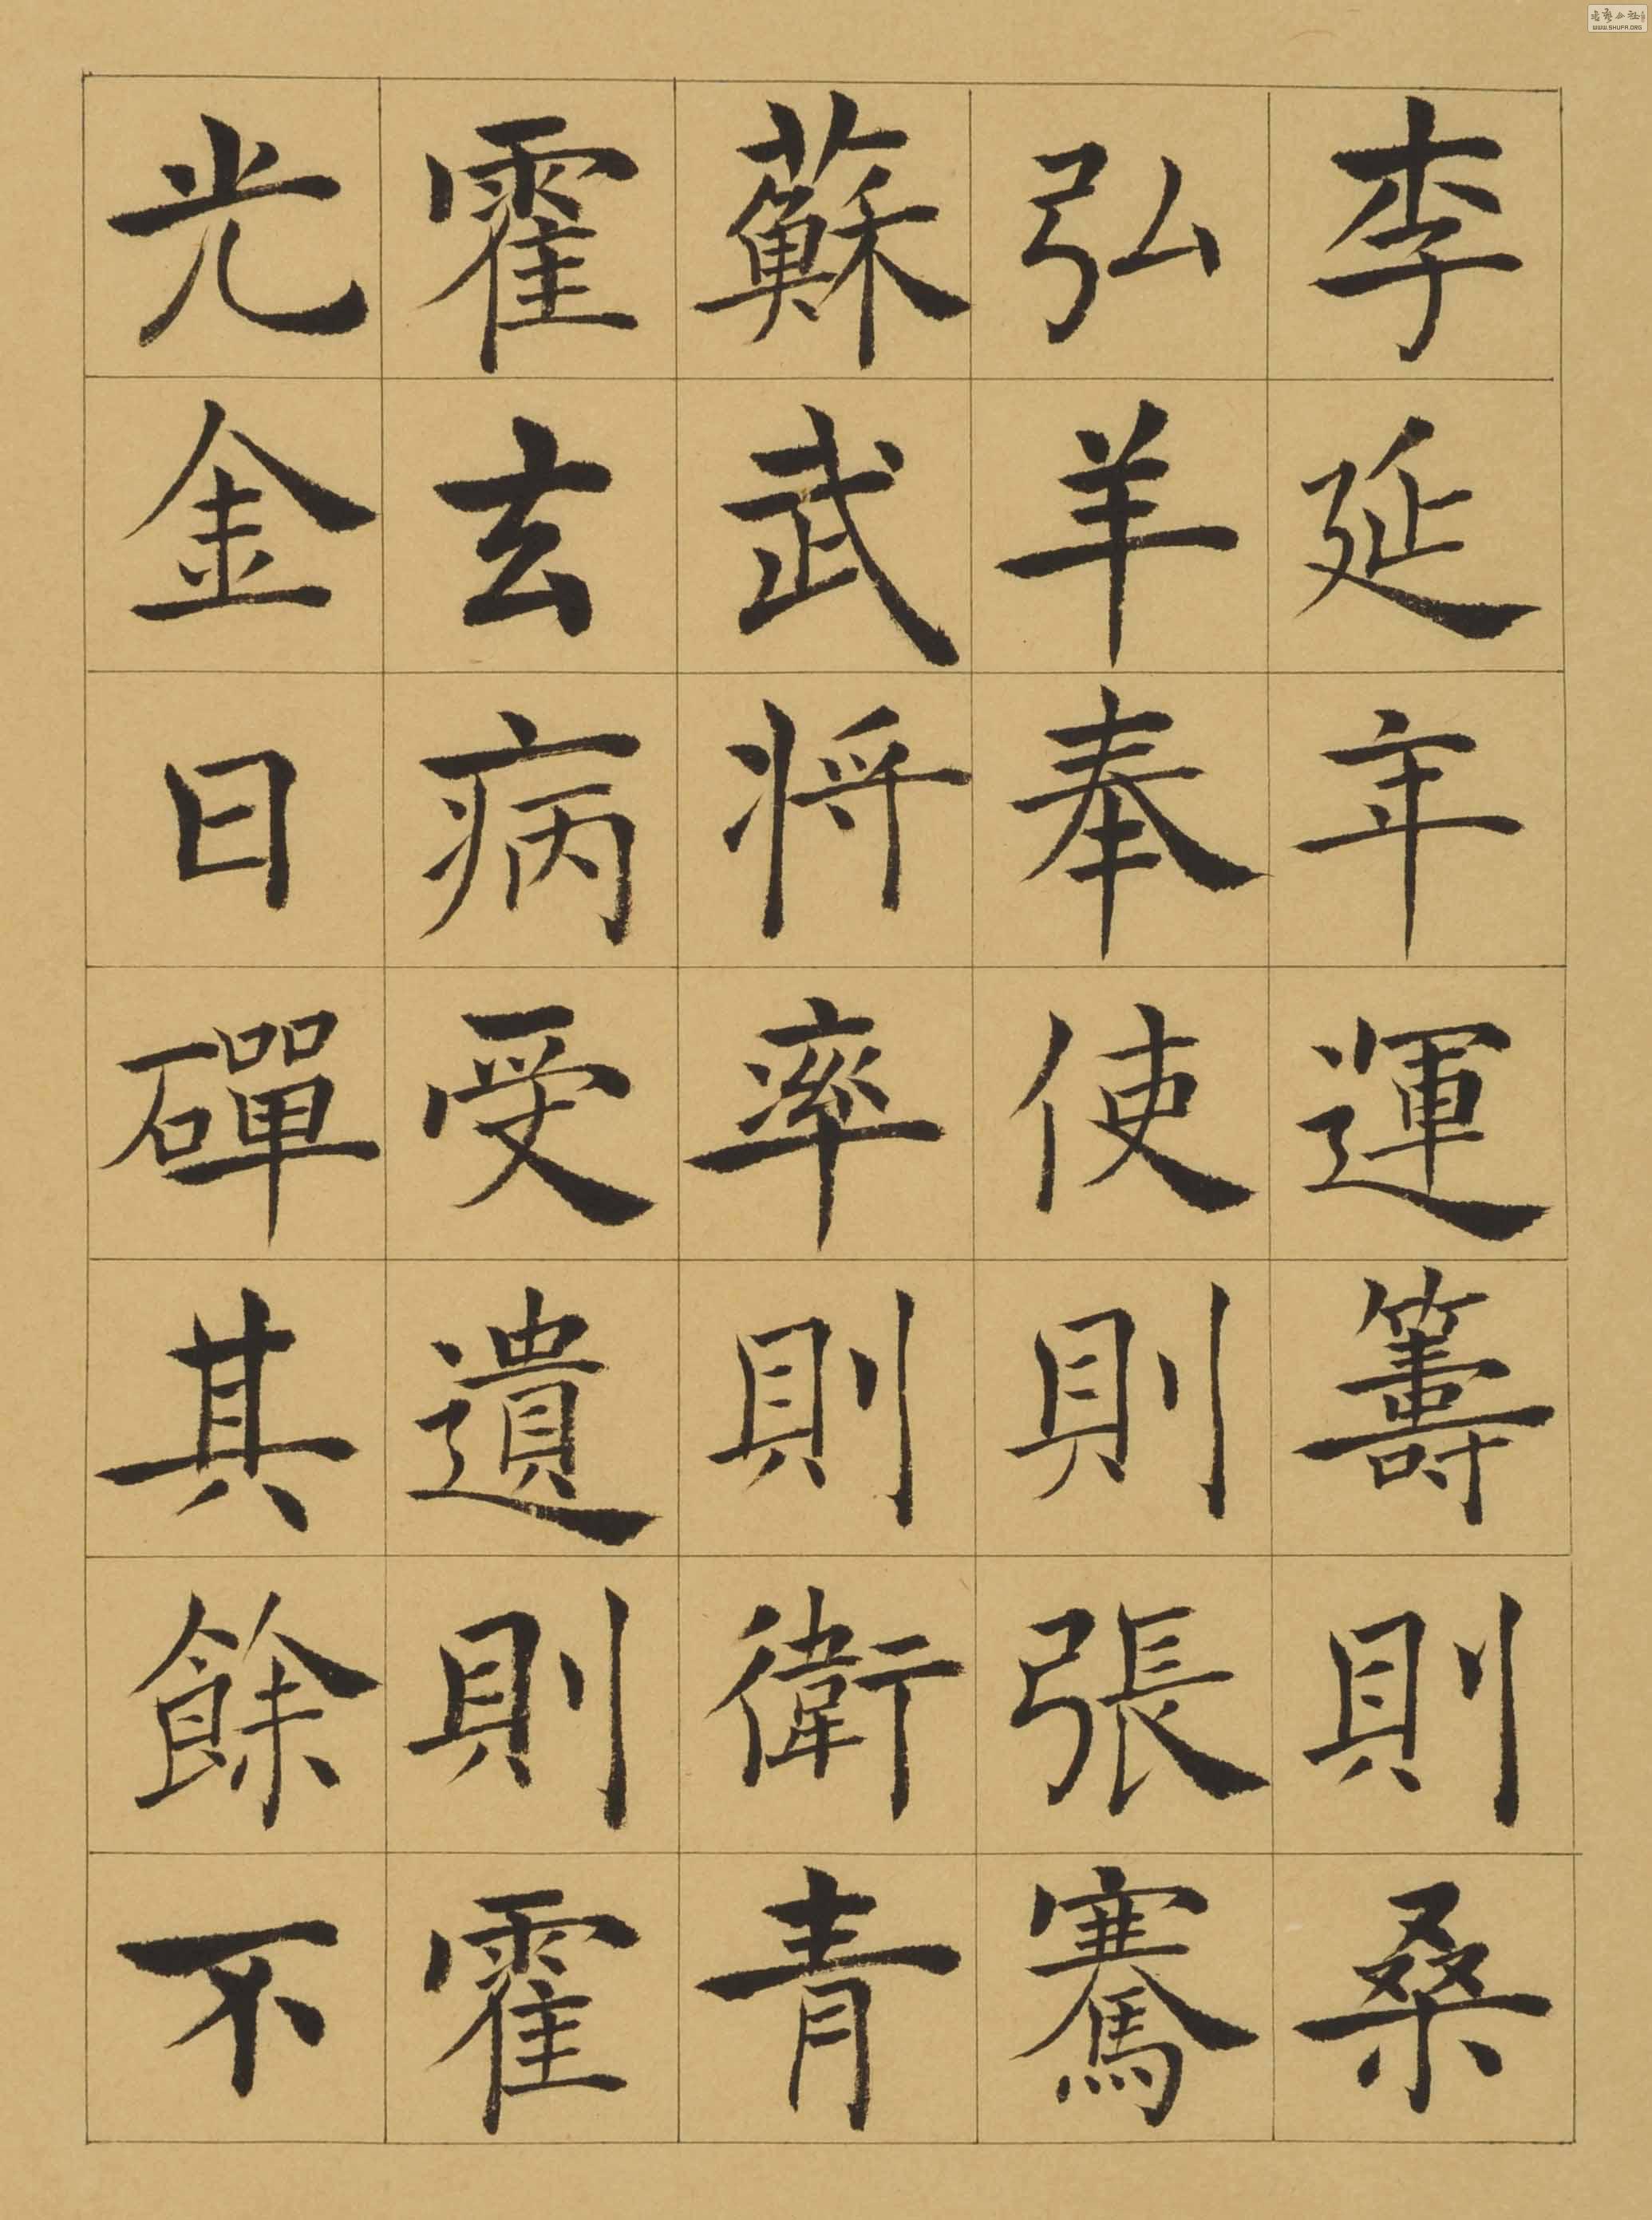 李延年運籌則桑
弘羊奉使則張騫
蘇武將率則衛青
霍去病受遺則霍
光金日磾其餘不
WWW.SHUFA.ORG